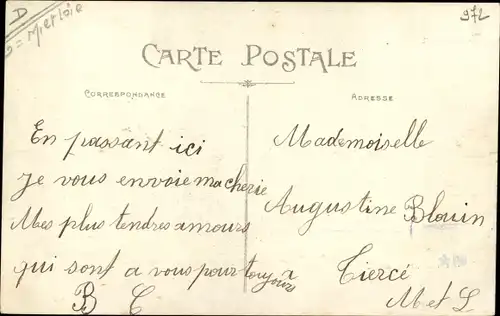 D
972
CARTE POSTALE
CORRESPONDANCE
ADRESSE
En passant ici
Je vous envoie ma cherie
Mes plus tendres amours
qui sont a vous pour toujours
B C
Mademoiselle
Augustine Blouin
Tiercé
M et L